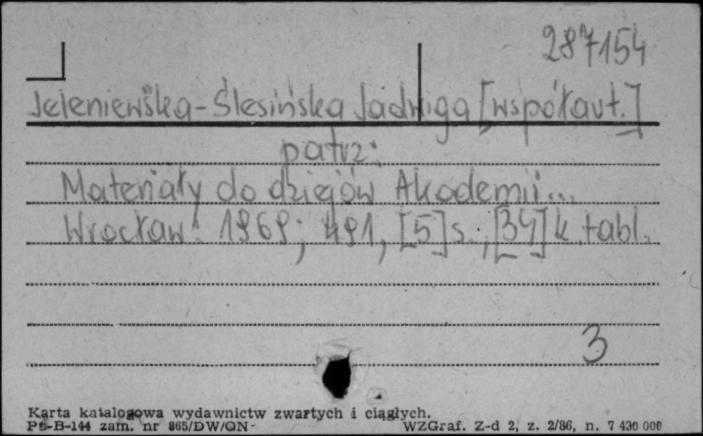 287154
Jeleniewska-Ślesińska Jadwiga [współaut.]
patrz:
Materiały do dziejów Akademii...
Wrocław: 1969; 491, [5] s., [34] k. tabl.
3
Karta katalogowa wydawnictw zwartych i ciągłych.
Pu-B-144 zam. nr 865/DW/QN- WZGraf. Z-d 2, z. 2/86, n. 7 430 000